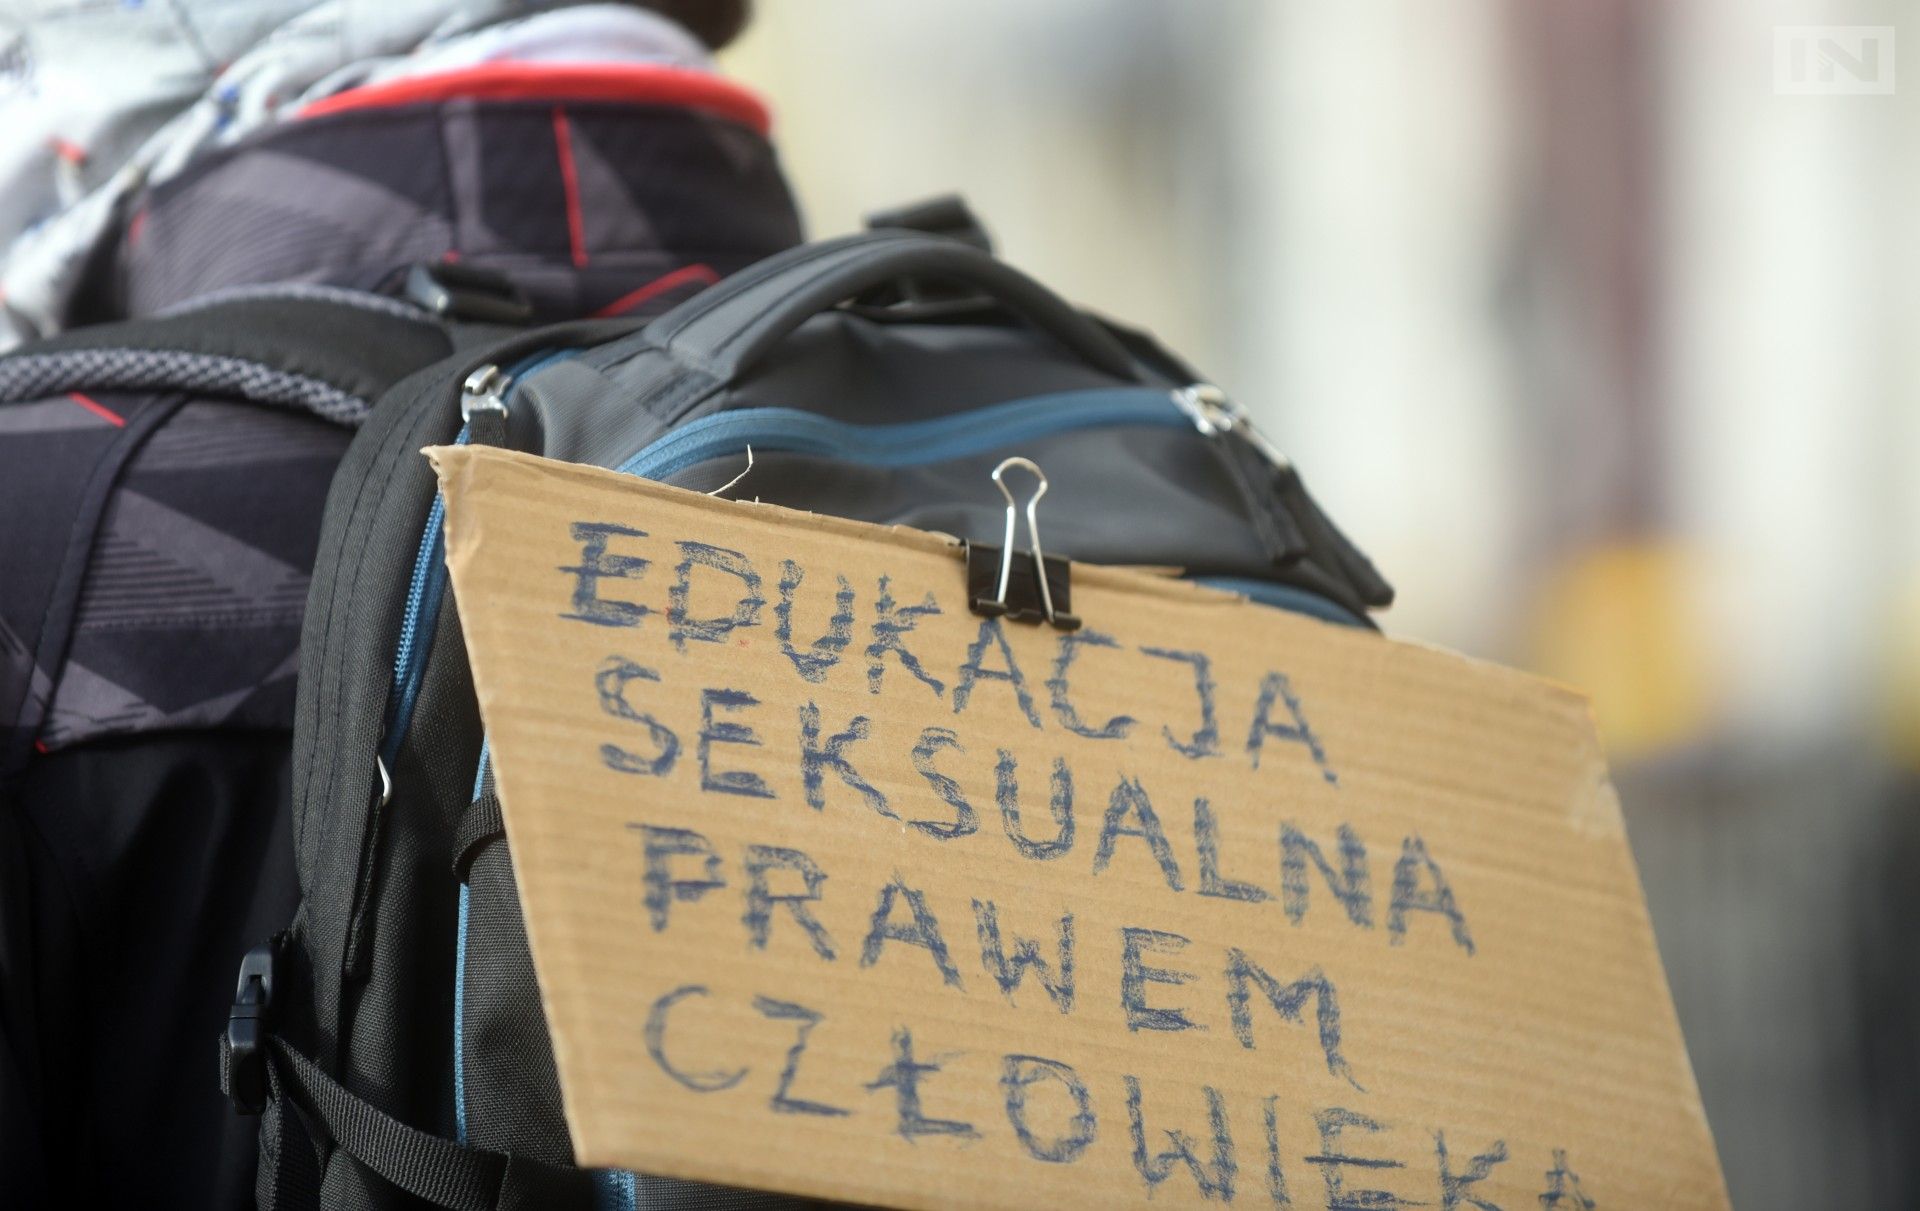 IN
EDUKACJA
SEKSUALNA
PRAWEM
CZŁOWIEKA